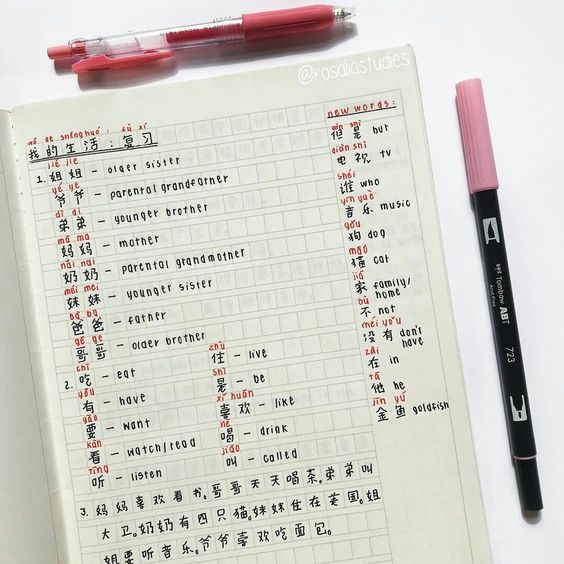 @rosaliastudies
wǒ de shēng huó : fù xí
我的生活:复习
jiě jie
1. 姐姐 - older sister
yé ye
爷爷 - parental grandfather
dì di
弟弟 - younger brother
mā ma
妈妈 - mother
nǎi nai
奶奶 - parental grandmother
mèi mei
妹妹 - younger sister
bà ba
爸爸 - father
gē ge
哥哥 - older brother
chī
2. 吃 - eat
yǒu
有 - have
yào
要 - want
kàn
看 - watch/read
tīng
听 - listen
zhù
住 - live
shì
是 - be
xǐ huān
喜欢 - like
hē
喝 - drink
jiào
叫 - called
3. 妈妈喜欢看书。哥哥天天喝茶。弟弟叫
大卫。奶奶有四只猫。妹妹住在美国。姐
姐要听音乐。爷爷喜欢吃面包。
new words:
dàn shì
但是 but
diàn shì
电视 tv
shéi
谁 who
yīn yuè
音乐 music
gǒu
狗 dog
māo
猫 cat
jiā
家 family/
home
bù
不 not
méi yǒu
没有 don't
have
zài
在 in
tā
他 he
jīn yú
金鱼 goldfish
Tombow ABT
723